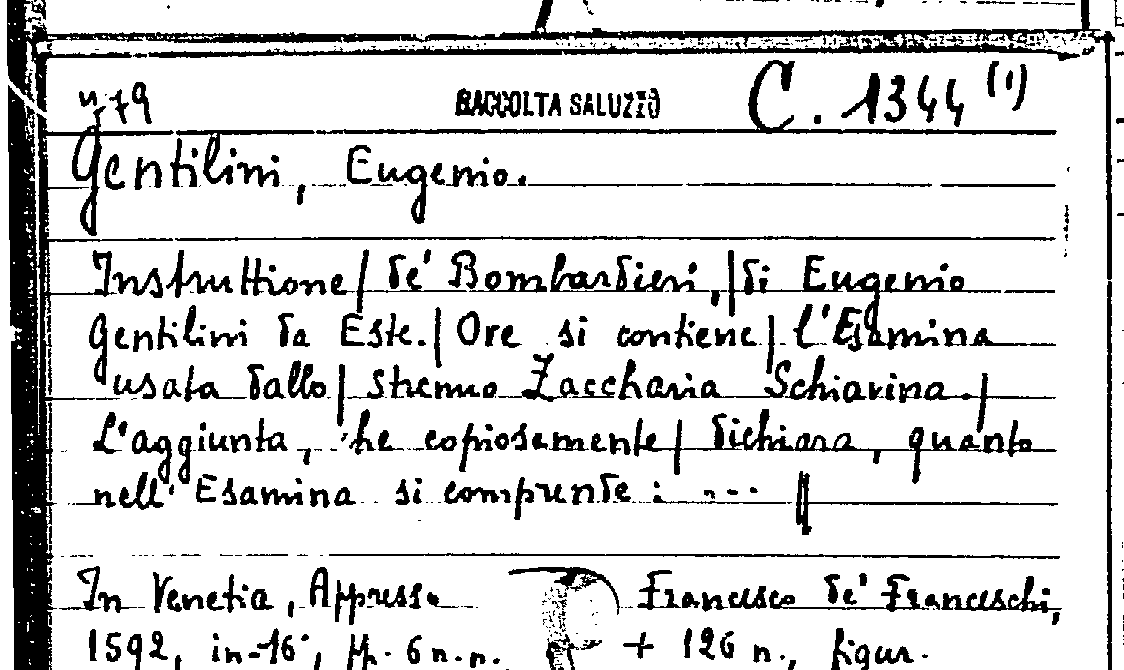 n 79 RACCOLTA SALUZZO C. 1344 (1)
Gentilini, Eugenio.
Instruttione | de' Bombardieri, | di Eugenio
Gentilini da Este. | Ore si contiene | l'Esamina
usata dallo | strenuo Zaccharia Schiavina. |
L'aggiunta, he copiosamente | dichiara, quanto
nell' Esamina si comprende : ... ||
In Venetia, Appresso Francesco de' Franceschi,
1592, in-16°, pp. 6 n.n. + 126 n., figur.